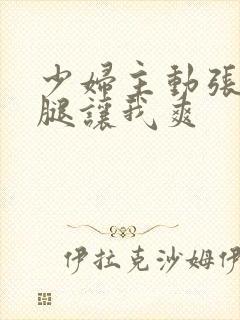 少婦主動張
腿讓我爽
伊拉克沙姆伊